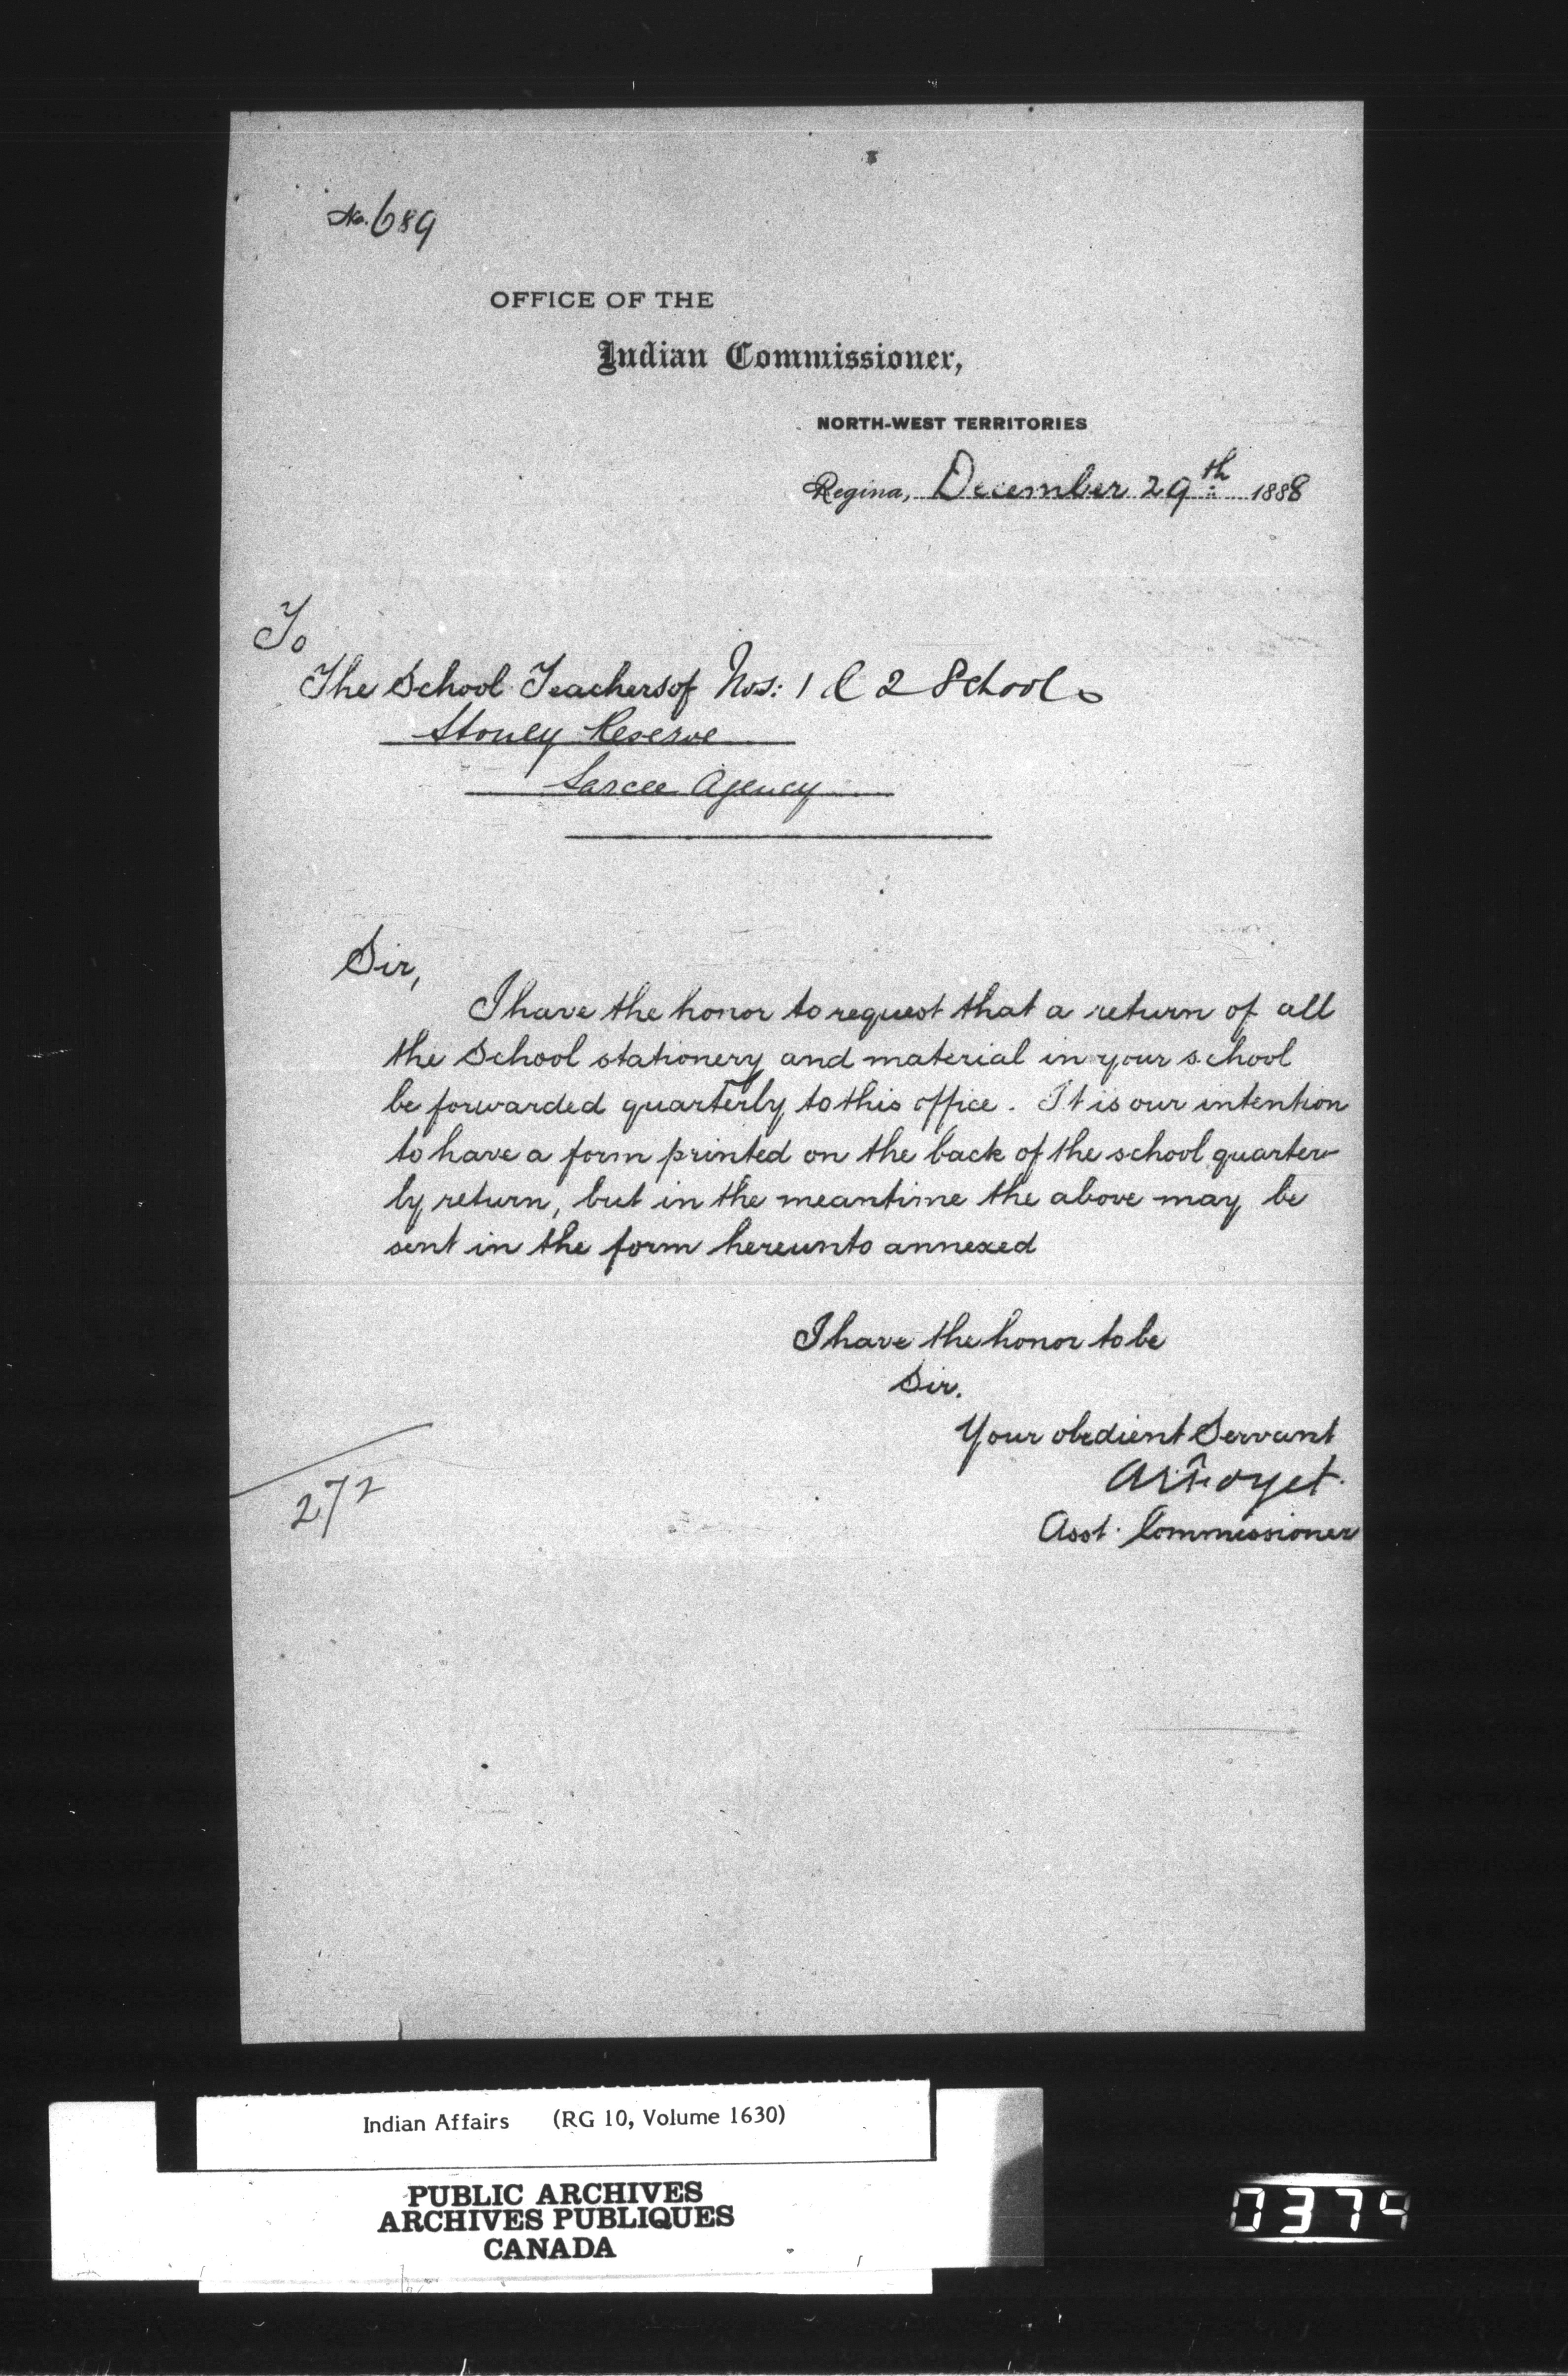 No. 689
OFFICE OF THE
Indian Commissioner,
NORTH-WEST TERRITORIES
Regina, December 29th 1888
To
The School Teachers of Nos: 1 & 2 Schools
Stoney Reserve
Sarcee Agency
Sir,
I have the honor to request that a return of all
the School stationery and material in your school
be forwarded quarterly to this office. It is our intention
to have a form printed on the back of the school quarter-
ly return, but in the meantime the above may be
sent in the form hereunto annexed
I have the honor to be
Sir.
Your obedient Servant
Asst. Commissioner
272
Indian Affairs (RG 10, Volume 1630)
PUBLIC ARCHIVES
ARCHIVES PUBLIQUES
CANADA
0379